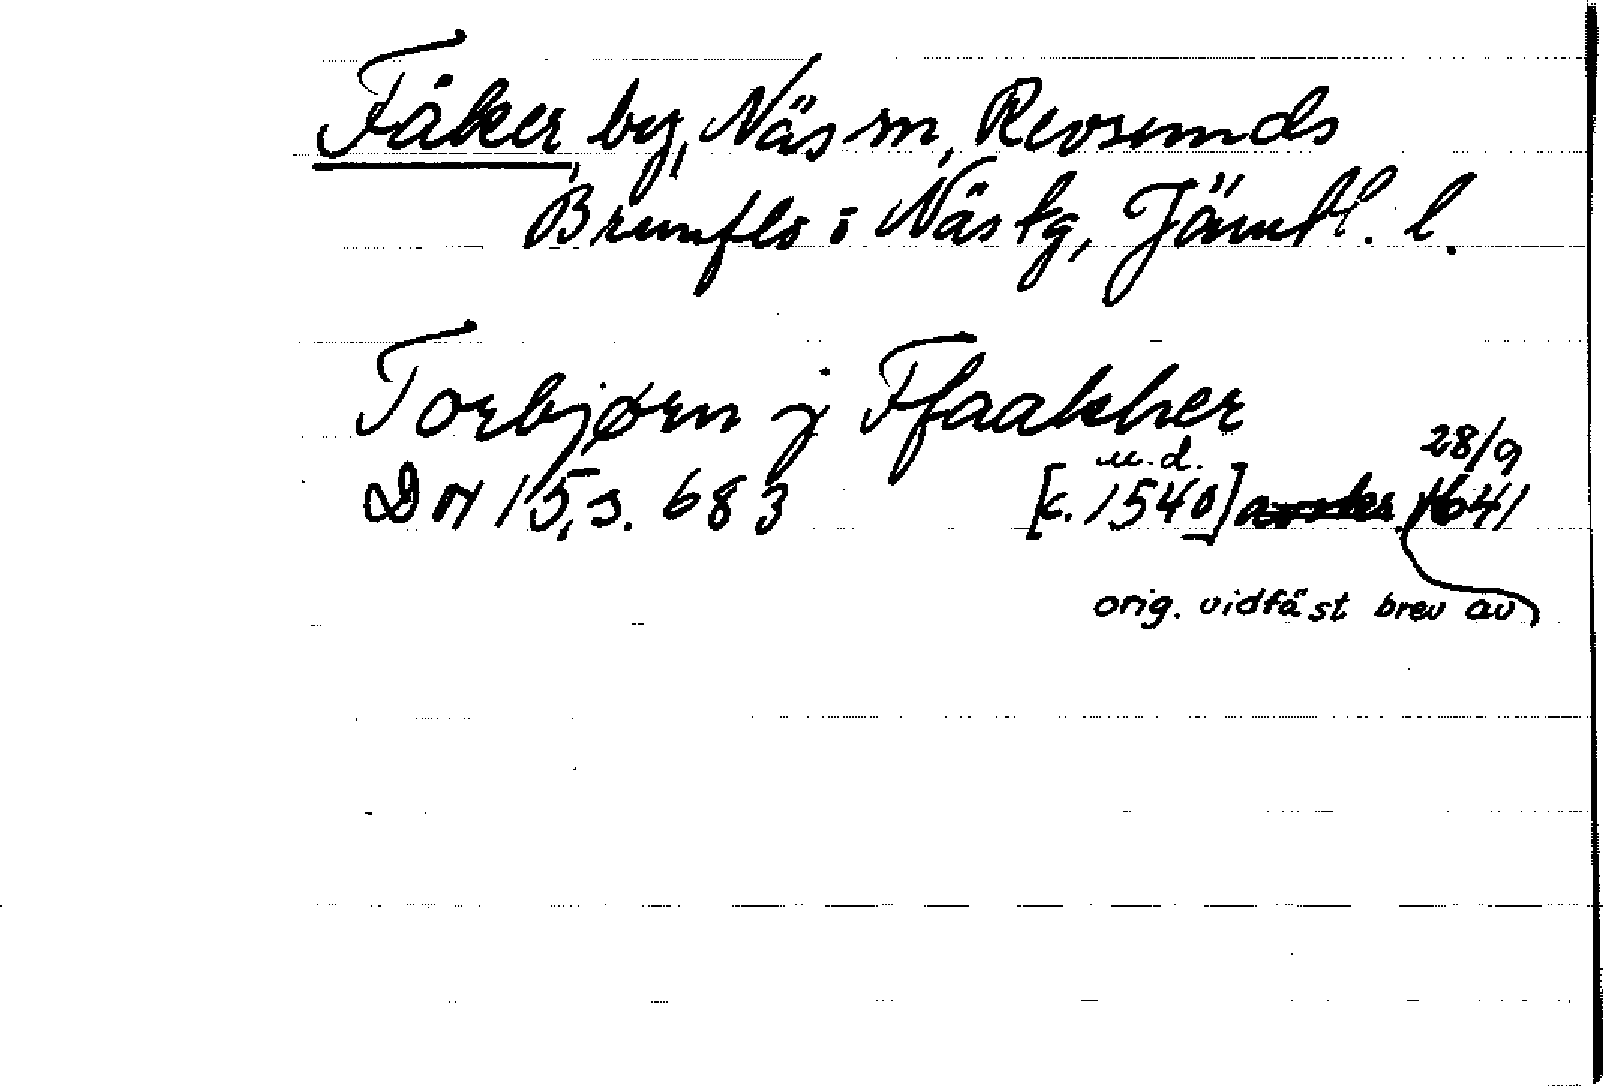 Fåker, by, Näs sn, Revsunds
Brunflo o Näs tg, Jämtl. l.
Torbjørn j Ffaakher
DN 15, s. 683 [c. 1540] u.d. 28/9 1641
orig. vidfäst brev av